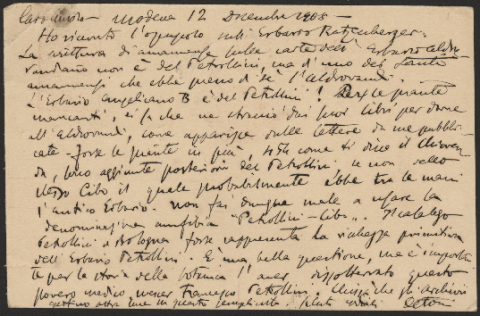 Caro amico - Modena 12 Dicembre 1908 -
Ho ricevuto l'opuscolo sull'Erbario Ratzenberger.
La scrittura di amanuense sulle carte dell'Erbario Aldro-
vandiano non è del Petrollini, ma d'uno dei tanti
amanuensi che ebbe presso di sè l'Aldrovandi.
L'Erbario angelicano B è del Petrollini! le piante
mancanti, si sa che ne strappò dai suoi libri per darne
all'Aldrovandi, come apparisce dalle lettere da me pubbli-
cate - forse le piante in più son come si dice il
da, sono aggiunte posteriori del Petrollini se non dello
stesso Cibo il quale probabilmente ebbe tra le mani
l'antico Erbario. Non fai dunque male a usare la
denominazione anfibia "Petrollini-Cibo". Il catalogo
Petrollini a Bologna forse rappresenta la ricchezza primitiva
dell'Erbario Petrollini. È una bella questione, ma è importan
te per la storia della botanica l'aver dissotterrato questo
povero medico messer Francesco Petrollini. Chissà che gli archivi
altre cose in questo saluti
De Toni